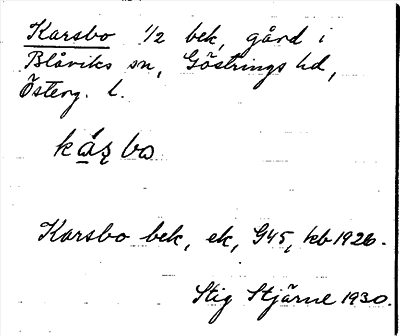 Karsbo 1/2 bek, gård i
Blåviks sn, Göstrings hd,
Österg. l.
ká̱ʂ bo
Karsbo bek, ek, G45, kb 1926.
Stig Stjärne 1930.